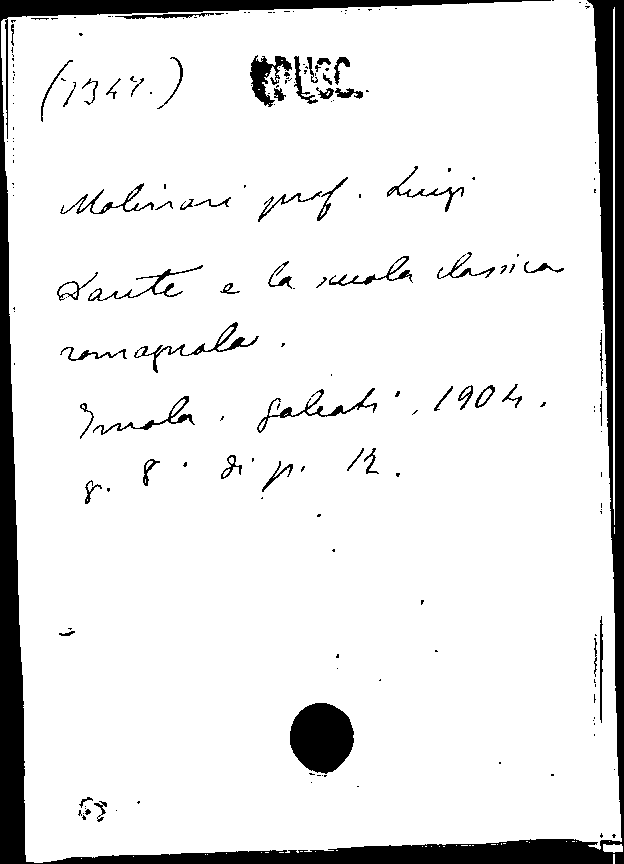 (1347.)
OPUSC.
Molinari prof. Luigi
Dante e la scuola classica
romagnola.
Imola. Galeati, 1904.
g. 8° di p. 12.